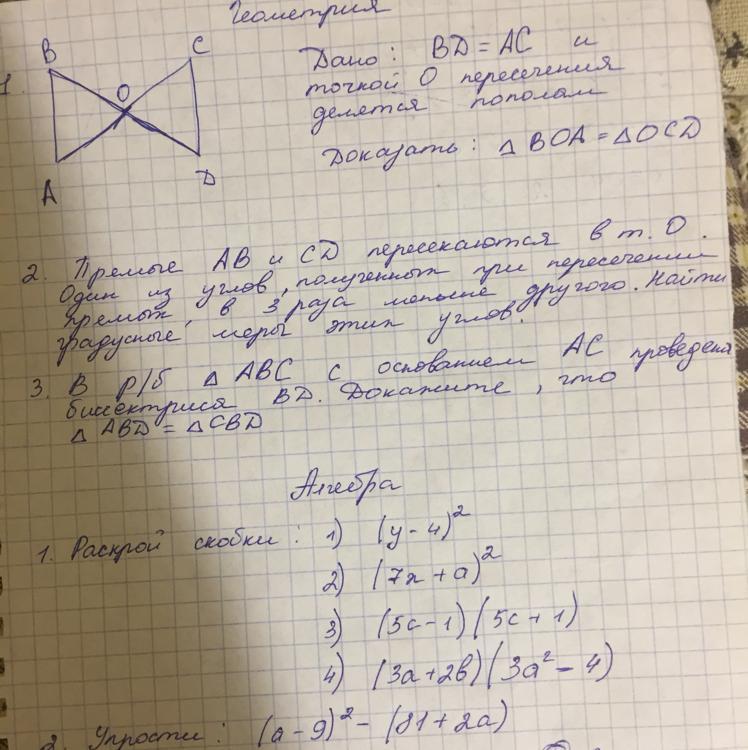 Геометрия
1.
B
C
O
A
D
Дано: BD = AC и
точкой O пересечения
делятся пополам
Доказать: △ BOA = △ OCD
2. Прямые AB и CD пересекаются в т. O.
Один из углов, полученных при пересечении
прямых, в 3 раза меньше другого. Найти
градусные меры этих углов.
3. В р/б △ ABC с основанием AC проведена
биссектриса BD. Докажите, что
△ ABD = △ CBD
Алгебра
1. Раскрой скобки: 1) (y - 4)²
2) (7x + a)²
3) (5c - 1)(5c + 1)
4) (3a + 2b)(3a² - 4)
2. Упрости: (a - 9)² - (81 + 2a)